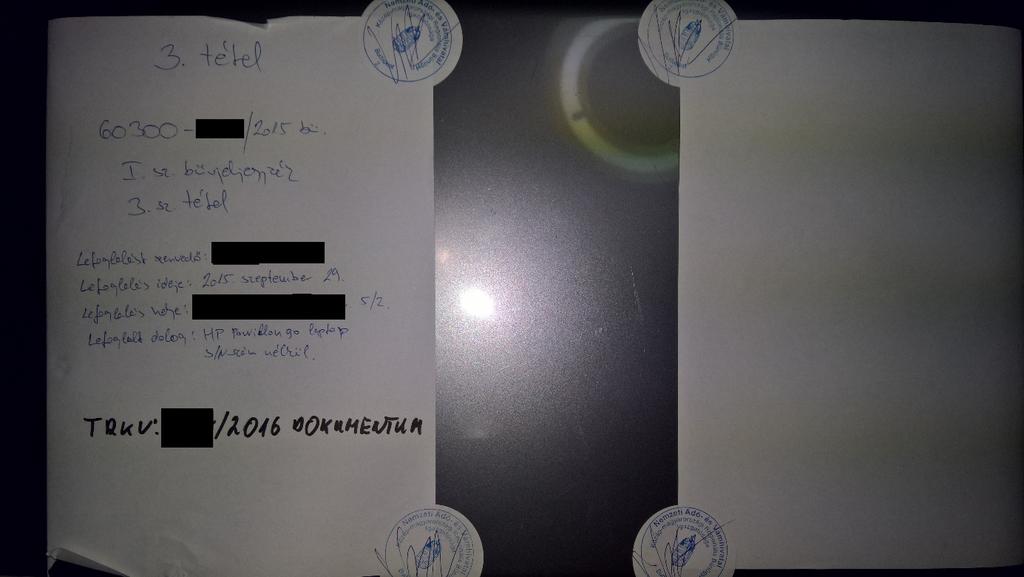 3. tétel
60300- /2015 bü.
I. sz. bűnjeljegyzék
3. sz. tétel
Lefoglalást szenvedő:
Lefoglalás ideje: 2015. szeptember 29.
Lefoglalás helye: 5/2.
Lefoglalt dolog: HP Pavilion go laptop
s/n szám nélkül.
TRKV: /2016 DOKUMENTUM
Nemzeti Adó- és Vámhivatal
Nemzeti Adó- és Vámhivatal
Nemzeti Adó- és Vámhivatal
Nemzeti Adó- és Vámhivatal